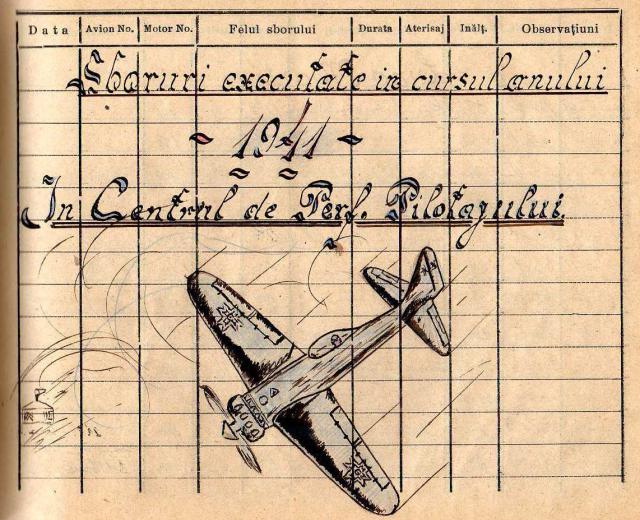 Data Avion No. Motor No. Felul sborului Durata Aterisaj Inălț. Observațiuni
Sboruri executate in cursul anului
- 1941 -
In Centrul de Perf. Pilotagiului.